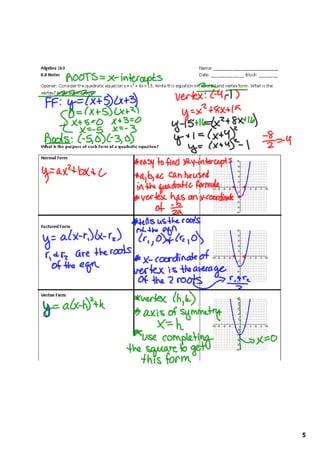 Algebra 1&3
Name: ___________________
8.8 Notes
Date: ____________ Block: _______
ROOTS = x-intercepts
Opener: Consider the quadratic equation y = x² + 8x + 15. Write this equation in factored and vertex form. What is the
vertex?
FF: y=(x+5)(x+3)
0=(x+5)(x+3)
x+5=0 x+3=0
x=-5 x=-3
Roots: (-5,0)(-3,0)
vertex: (-4,-1)
y=x²+8x+15
y-15+16=(x²+8x+16)
y+1=(x+4)²
y=(x+4)²-1
-8/2=-4
What is the purpose of each form of a quadratic equation?
Normal Form
y=ax²+bx+c
*easy to find y-intercepts
*a,b,&c can be used
in the quadratic formula
*vertex has an x-coordinate
of -b/2a
Factored Form
y=a(x-r₁)(x-r₂)
r₁&r₂ are the roots
of the eqn
*tells us the roots
of the eqn
(r₁,0)&(r₂,0)
*x-coordinate of
vertex is the average
of the 2 roots
r₁+r₂/2
Vertex Form
y=a(x-h)²+k
*vertex (h,k)
*axis of symmetry
x=h
*use completing
the square to get
this form
x=0
5